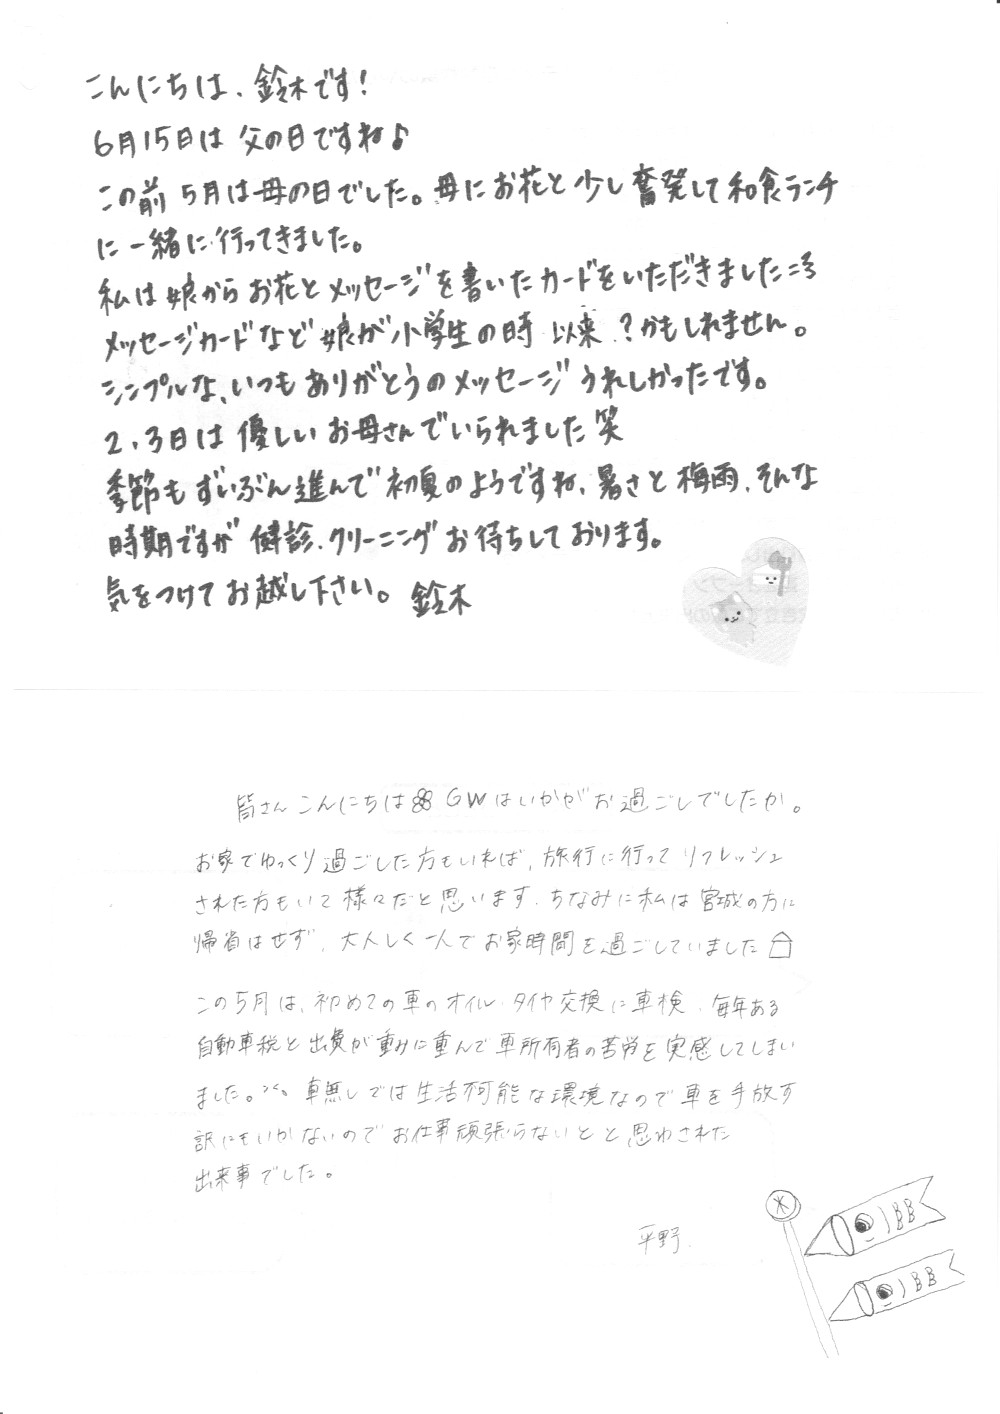 こんにちは、鈴木です！
6月15日は 父の日ですね♪
この前 5月は母の日でした。母にお花と少し奮発して和食ランチ
に一緒に行ってきました。
私は娘からお花とメッセージを書いたカードをいただきました
メッセージカードなど娘が小学生の時 以来？かもしれません。
シンプルな、いつもありがとうのメッセージうれしかったです。
2、3日は優しいお母さんでいられました笑
季節もずいぶん進んで初夏のようですね、暑さと梅雨、そんな
時期ですが 健診、クリーニングお待ちしております。
気をつけてお越し下さい。 鈴木
皆さんこんにちは GWはいかがお過ごしでしたか。
お家でゆっくり過ごした方もいれば、旅行に行ってリフレッシュ
された方もいて様々だと思います、ちなみに私は宮城の方に
帰省はせず、大人しく一人でお家時間を過ごしていました
この5月は、初めての車のオイル・タイヤ交換に車検、毎年ある
自動車税と出費が重みに重んで車所有者の苦労を実感してしまい
ました。 車無しでは生活不可能な環境なので車を手放す
訳にもいかないのでお仕事頑張らないとと思わされた
出来事でした。
平野